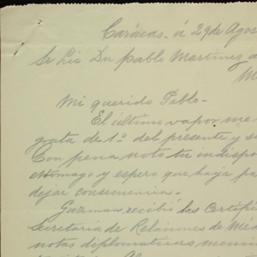 Carácas - á 29 de Agos
Sr Lic Dn Pablo Martinez
M
Mi querido Pablo -
El último vapor me
grata de 1º del presente y
Con pena noto tu indispo
estómago y espero que haya pa
dejar consecuencias.
Guzman recibió las
Secretaria de Relaciones de Mé
notas diplomaticas